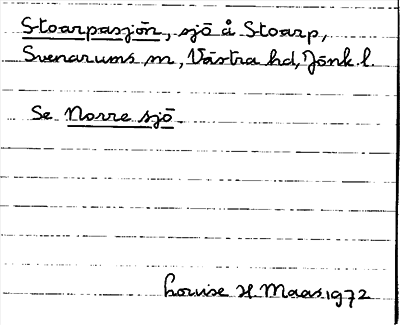 Stoarpasjön, sjö å Stoarp,
Svenarums sn, Västra hd, Jönk. l.
Se Norre sjö
Louise H. Maas 1972